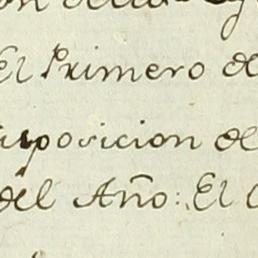 El Primero de
uposicion de
del Año: El